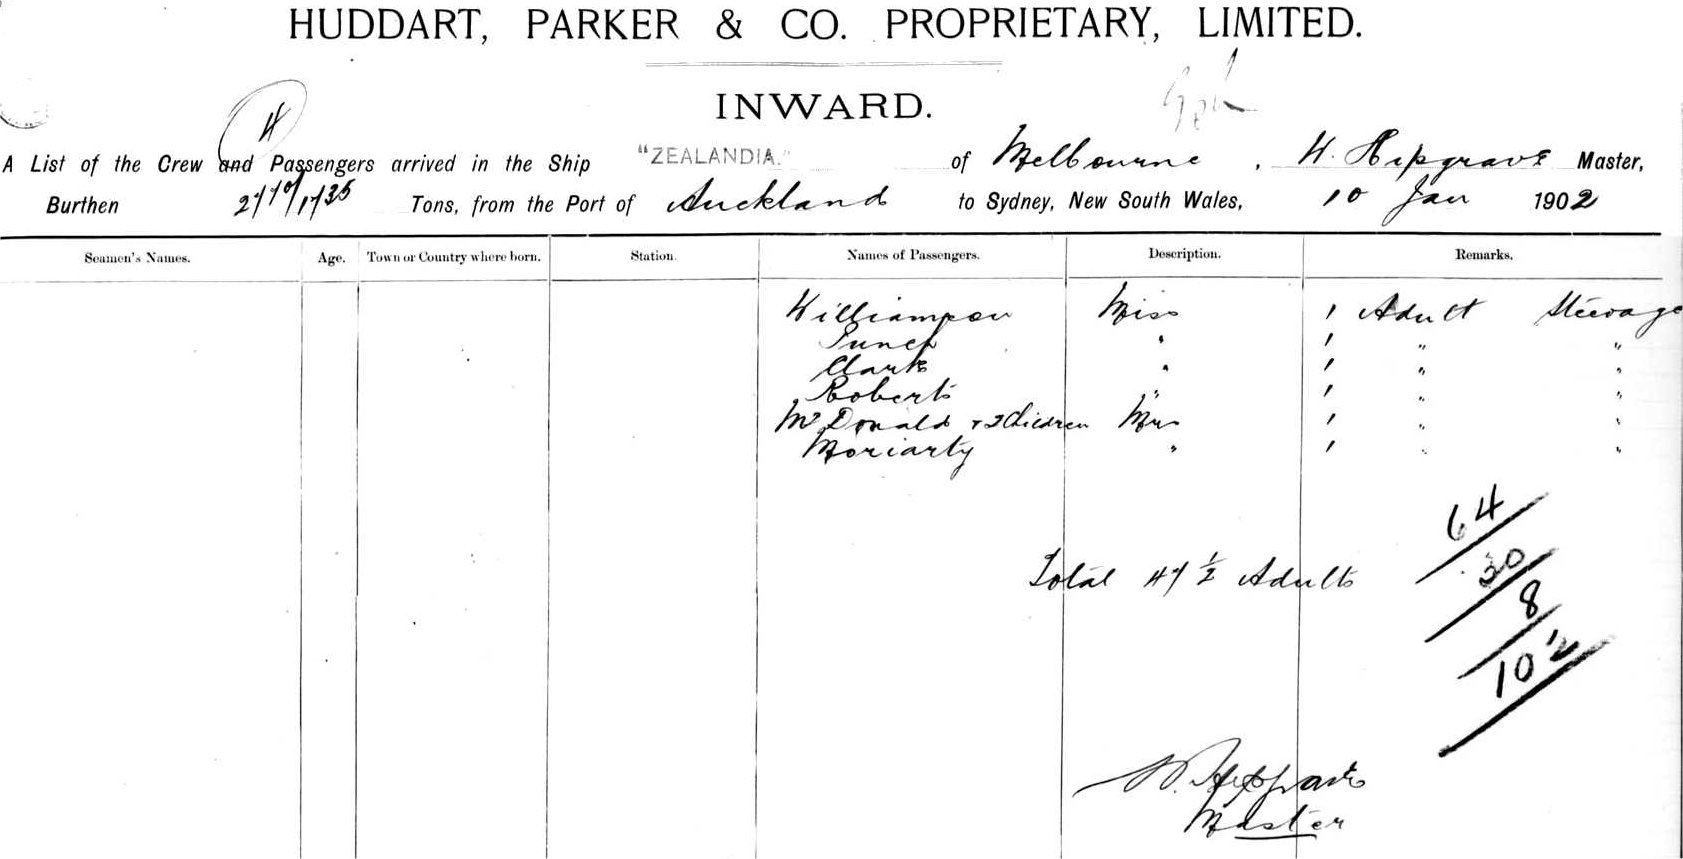 HUDDART, PARKER & CO. PROPRIETARY, LIMITED.
INWARD.
A List of the Crew and Passengers arrived in the Ship "ZEALANDIA." of Melbourne, W. Hipgrave Master,
Burthen Tons, from the Port of Auckland to Sydney, New South Wales, 10 Jan 1902
Seamen's Names. Age. Town or Country where born. Station. Names of Passengers. Description. Remarks.
Williamson Miss 1 Adult Steerage
Punch " 1 " "
Clark " 1 " "
Roberts " 1 " "
McDonald + 2 Children Mrs 1 " "
Moriarty " 1 " "
64
Total 47 1/2 Adults
30
8
10 1/2
W. Hipgrave
Master